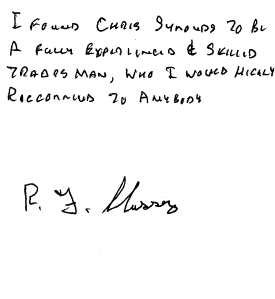 I FOUND CHRIS SYMONDS TO BE
A FULLY EXPERIENCED & SKILLED
TRADES MAN, WHO I WOULD HIGHLY
RECCOMEND TO ANYBODY
R. J. Murray